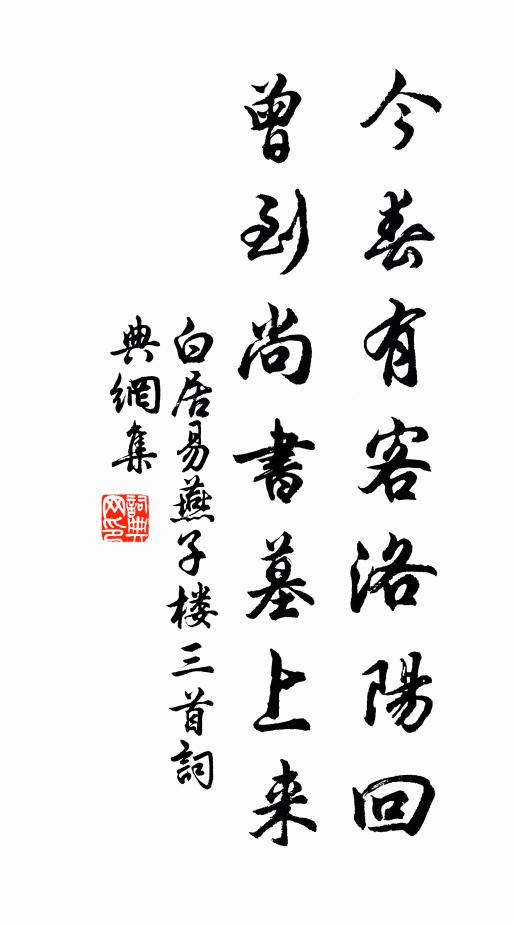 今春有客洛陽回
曾到尚書墓上来
白居易燕子楼三首詞
典網集
詞典网印